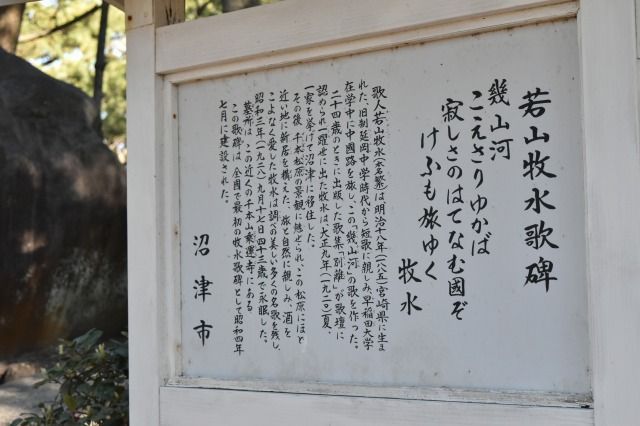 若山牧水歌碑
幾山河
こえさりゆかば
寂しさのはてなむ國ぞ
けふも旅ゆく
牧水
歌人若山牧水(名繁)は明治十八年(一八八五)宮崎県に生ま
れた。旧制延岡中学時代から短歌に親しみ、早稲田大学
在学中に中國路を旅し、この「幾山河」の歌を作った。
二十四歳のときに出版した歌集「別離」が歌壇に
認められ一躍世に出た牧水は、大正九年(一九二〇)夏、
一家を挙げて沼津に移住した。
その後、千本松原の景観に魅せられ、この松原にほど
近い地に新居を構えた。旅と自然に親しみ、酒を
こよなく愛した牧水は調べの美しい多くの名歌を残し、
昭和三年(一九二八)九月十七日四十三歳で永眠した。
墓所は、この近くの千本山乗運寺にある。
この歌碑は、全国で最初の牧水歌碑として昭和四年
七月に建設された。
沼津市